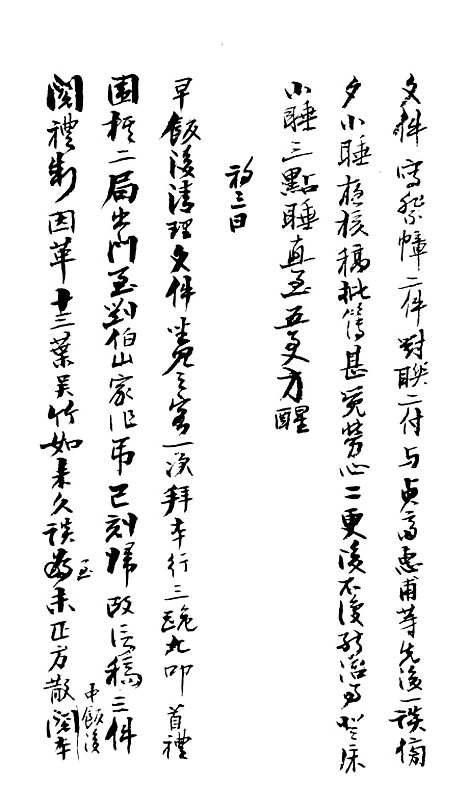 文件寫祭幛二件對聯二付与貞高惠甫等先後一談傍
夕小睡夜核稿批簿甚覺勞心二更後不復能治事登床
小睡三點睡直至五更方醒
初三日
早飯後清理文件坐見之客一次拜本行三跪九叩首禮
圍棋二局出門至劉伯山家作弔巳刻歸改信稿三件
閱禮制因革十三葉吳竹如來久談至未正方散中飯後閱本